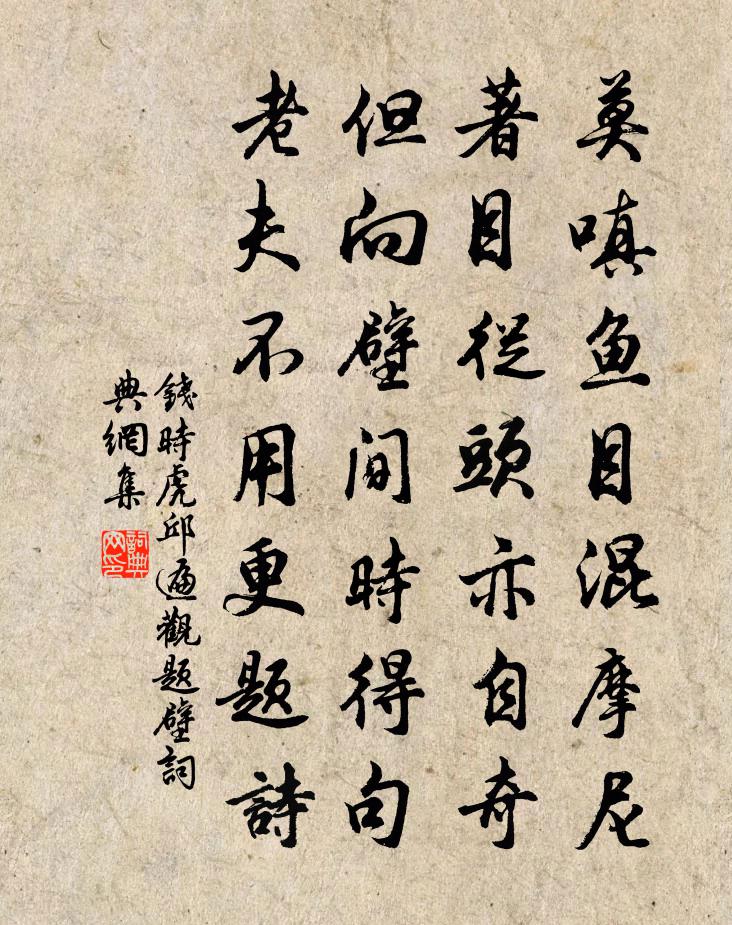 莫嗔鱼目混摩尼
著目從頭亦自奇
但向壁間時得句
老夫不用更題詩
錢時虎邱遍觀題壁詞
典網集
詞典
网印